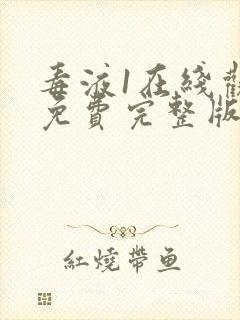 毒液1在綫觀
免費完整版
紅燒帶鱼